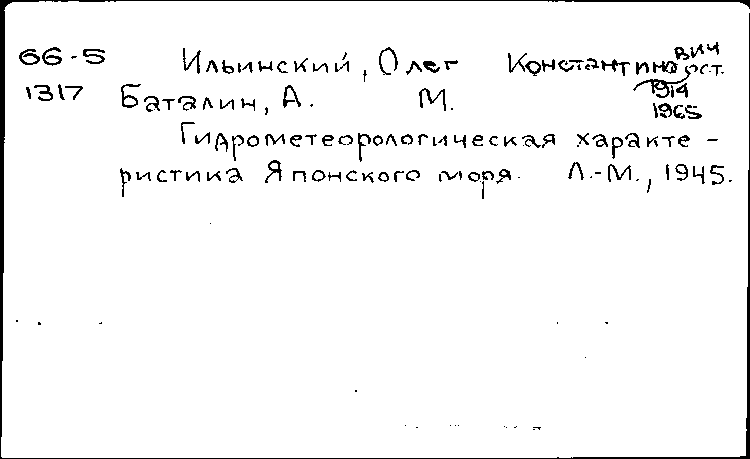 66-5 Ильинский, Олег Константинович
1317 Баталин, А. М. 1914
1965
Гидрометеорологическая характе-
ристика Японского моря. Л.-М., 1945.